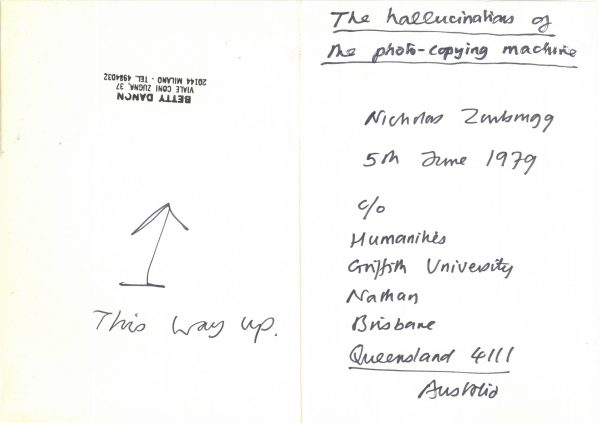 BETTY DANON
VIALE CONI ZUGNA, 37
20144 MILANO - TEL. 4984032
This way up.
The hallucinations of
the photo-copying machine
Nicholas Zurbrugg
5th June 1979
c/o
Humanities
Griffith University
Nathan
Brisbane
Queensland 4111
Australia